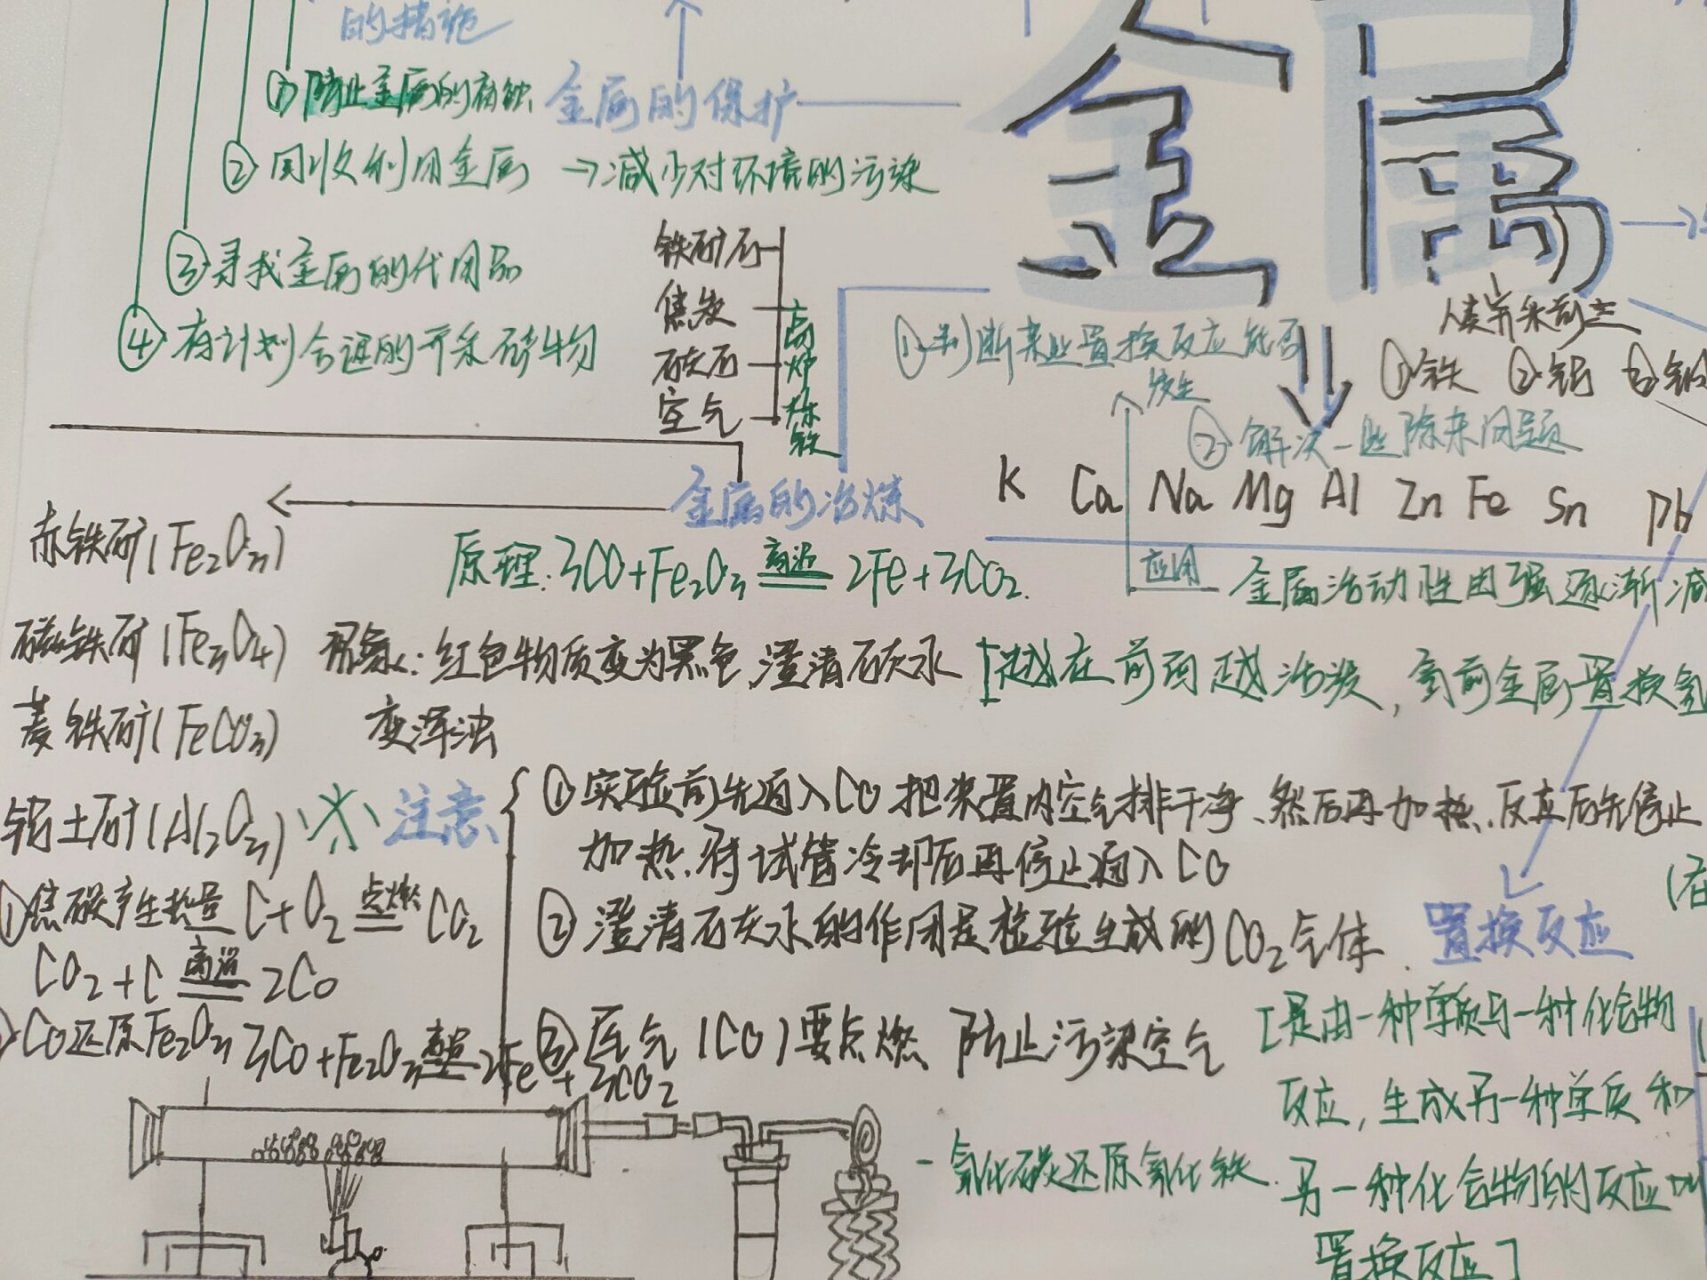 的措施
①防止金属的腐蚀
金属的保护
②回收利用金属 →减少对环境的污染
③寻找金属的代用品
④有计划合理的开采矿物
铁矿石
焦炭
石灰石
空气
高炉炼铁
金属
人类开采前三
①铁 ②铝 ③铜
①判断某些置换反应能否
发生
②解决一些除杂问题
K Ca Na Mg Al Zn Fe Sn Pb
应用
金属活动性由强逐渐减
[越在前面越活泼,氢前金属置换氢
金属的冶炼
赤铁矿(Fe₂O₃)
磁铁矿(Fe₃O₄)
菱铁矿(FeCO₃)
铝土矿(Al₂O₃)
原理:3CO+Fe₂O₃ 高温 2Fe+3CO₂.
现象:红色物质变为黑色,澄清石灰水
变浑浊
注意
①实验前先通入CO把装置内空气排干净、然后再加热.反应后先停止
加热.待试管冷却后再停止通入CO
②澄清石灰水的作用是检验生成的CO₂气体.
③尾气(CO)要点燃 防止污染空气
①焦碳产生热量 C+O₂ 点燃 CO₂
CO₂+C 高温 2CO
CO还原Fe₂O₃ 3CO+Fe₂O₃ 高温 2Fe+3CO₂
一氧化碳还原氧化铁.
置换反应
[是由一种单质与一种化合物
反应,生成另一种单质和
另一种化合物的反应叫
置换反应]